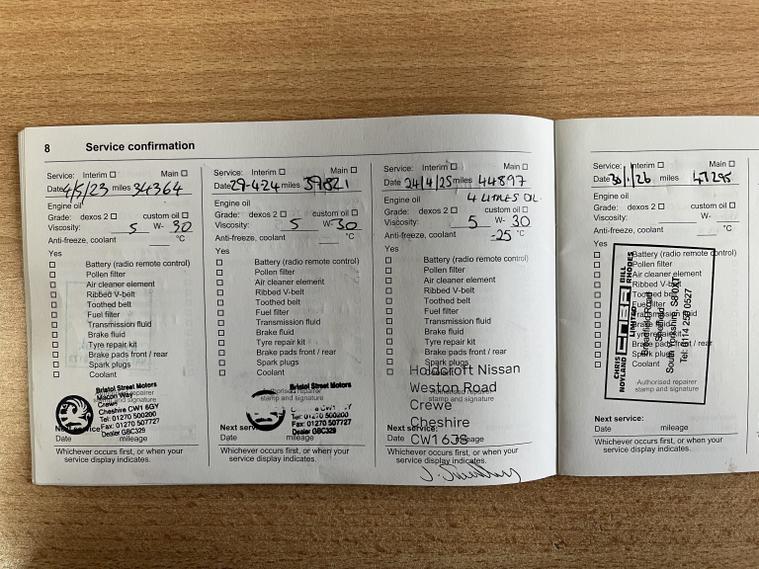 8 Service confirmation
Service: Interim Main
Date 4/5/23 miles 34364
Engine oil
Grade: dexos 2 custom oil
Viscosity: 5 W- 30
Anti-freeze, coolant °C
Yes
Battery (radio remote control)
Pollen filter
Air cleaner element
Ribbed V-belt
Toothed belt
Fuel filter
Transmission fluid
Brake fluid
Tyre repair kit
Brake pads front / rear
Spark plugs
Coolant
Authorised repairer
stamp and signature
Bristol Street Motors
Macon Way
Crewe
Cheshire CW1 6GY
Tel: 01270 500200
Fax: 01270 507727
Dealer GBC329
Next service:
Date mileage
Whichever occurs first, or when your
service display indicates.
Service: Interim Main
Date 29-4-24 miles 39821
Engine oil
Grade: dexos 2 custom oil
Viscosity: 5 W- 30
Anti-freeze, coolant °C
Yes
Battery (radio remote control)
Pollen filter
Air cleaner element
Ribbed V-belt
Toothed belt
Fuel filter
Transmission fluid
Brake fluid
Tyre repair kit
Brake pads front / rear
Spark plugs
Coolant
Authorised repairer
stamp and signature
Bristol Street Motors
Tel: 01270 500200
Fax: 01270 507727
Dealer GBC329
Next service:
Date mileage
Whichever occurs first, or when your
service display indicates.
Service: Interim Main
Date 24/4/25 miles 44897
Engine oil 4 LITRES OIL.
Grade: dexos 2 custom oil
Viscosity: 5 W- 30
Anti-freeze, coolant -25 °C
Yes
Battery (radio remote control)
Pollen filter
Air cleaner element
Ribbed V-belt
Toothed belt
Fuel filter
Transmission fluid
Brake fluid
Tyre repair kit
Brake pads front / rear
Spark plugs
Coolant
Authorised repairer
stamp and signature
Holdcroft Nissan
Weston Road
Crewe
Cheshire
Next service:
Date mileage
Whichever occurs first, or when your
service display indicates.
Service: Interim Main
Date 30/1/26 miles 47295
Engine oil
Grade: dexos 2 custom oil
Viscosity: W-
Anti-freeze, coolant
Yes
Battery (radio remote control)
Pollen filter
Air cleaner element
Ribbed V-belt
Toothed belt
Fuel filter
Transmission fluid
Brake fluid
Tyre repair kit
Brake pads front / rear
Spark plugs
Coolant
Authorised repairer
stamp and signature
CHRIS
NOYLAND
BILL
RHODES
LIMITED
Broadfield Road
Sheffield
South Yorkshire, S8 0XT
Next service:
Date mileage
Whichever occurs first, or when your
service display indicates.